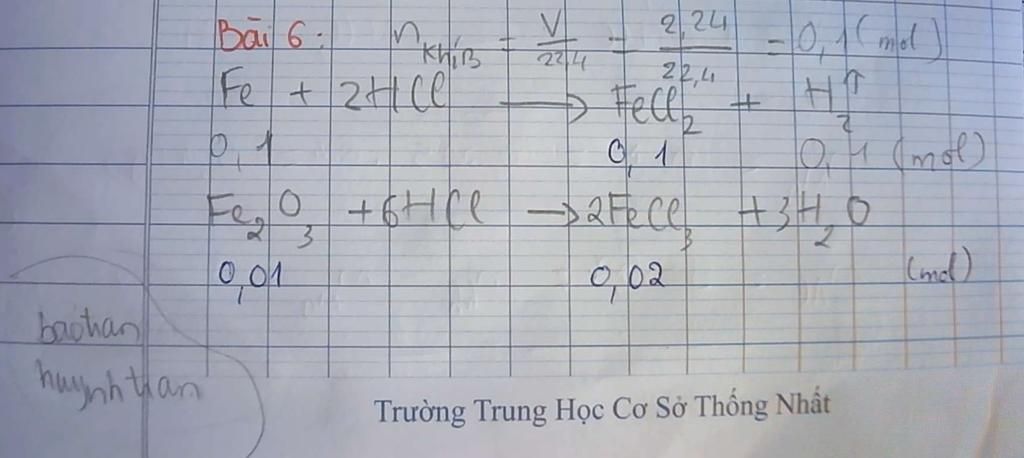 Bài 6: n khíB = V/22,4 = 2,24/22,4 = 0,1 (mol)
Fe + 2HCl → FeCl₂ + H₂↑
0,1 0,1 0,1 (mol)
Fe₂O₃ + 6HCl → 2FeCl₃ + 3H₂O
0,01 0,02 (mol)
baohan
huynhtran
Trường Trung Học Cơ Sở Thống Nhất